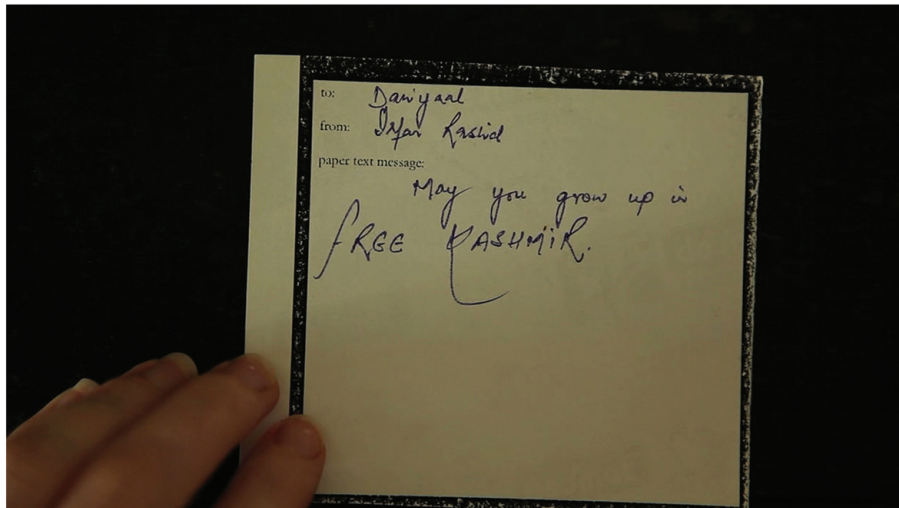 to: Daniyaal
from: Irfan Rashid
paper text message:
May you grow up in
FREE KASHMIR.